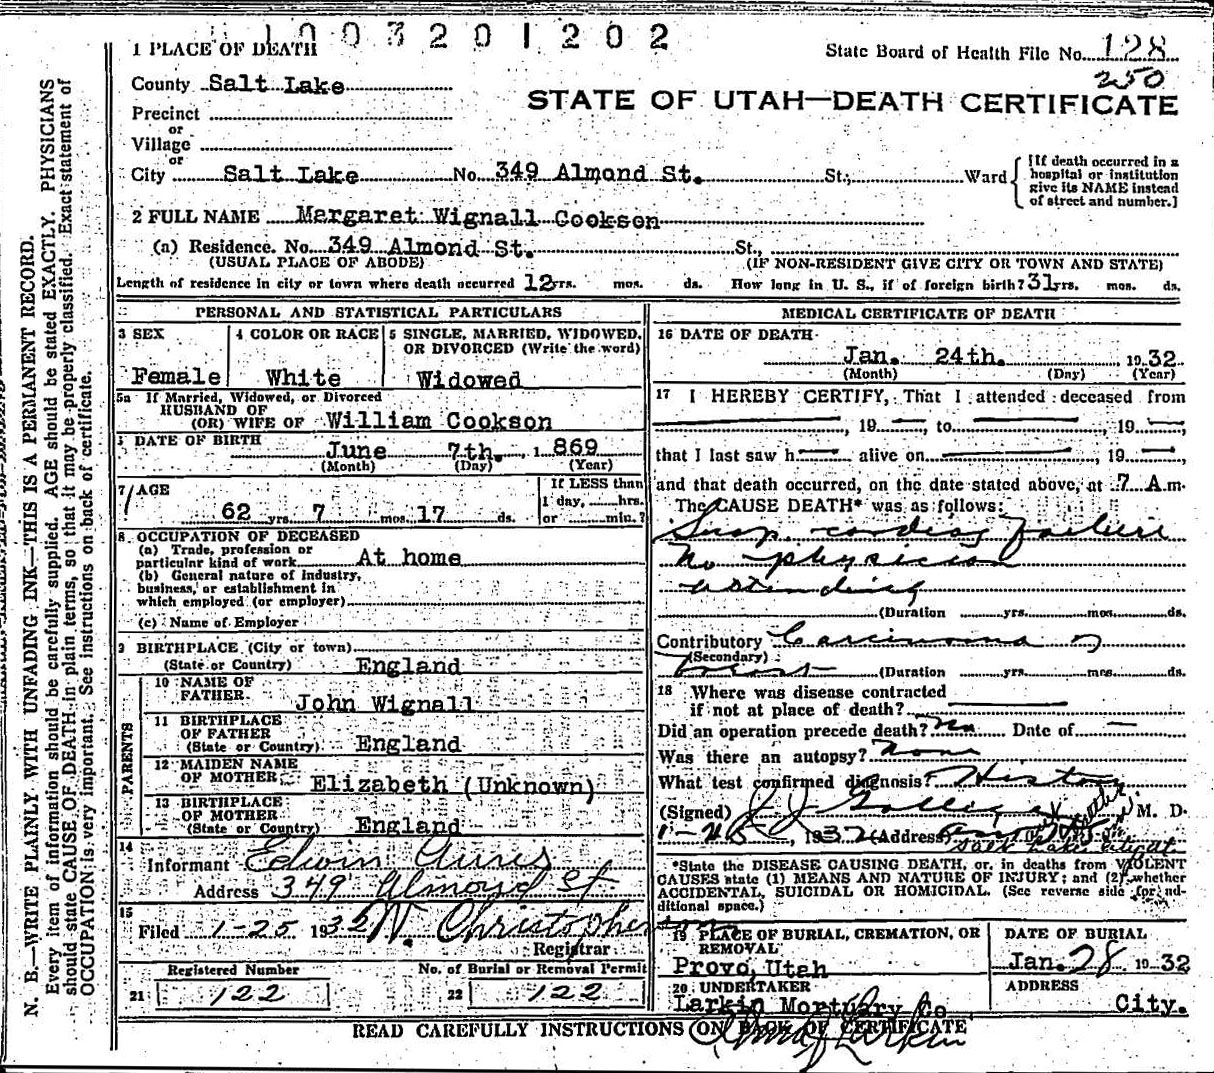 1003201202
1 PLACE OF DEATH
State Board of Health File No. 128
250
County Salt Lake
STATE OF UTAH—DEATH CERTIFICATE
Precinct
or
Village
or
City Salt Lake No. 349 Almond St. St., Ward
[If death occurred in a
hospital or institution
give its NAME instead
of street and number.]
2 FULL NAME Margaret Wignall Cookson
(a) Residence. No. 349 Almond St. St.,
(USUAL PLACE OF ABODE) (IF NON-RESIDENT GIVE CITY OR TOWN AND STATE)
Length of residence in city or town where death occurred 12 yrs. mos. ds. How long in U. S., if of foreign birth? 31 yrs. mos. ds.
PERSONAL AND STATISTICAL PARTICULARS
3 SEX
Female
4 COLOR OR RACE
White
5 SINGLE, MARRIED, WIDOWED,
OR DIVORCED (Write the word)
Widowed
5a If Married, Widowed, or Divorced
HUSBAND OF
(OR) WIFE OF William Cookson
DATE OF BIRTH
June 7th. , 1 869
(Month) (Day) (Year)
7 AGE
62 yrs. 7 mos. 17 ds.
If LESS than
1 day, hrs.
or min.?
8 OCCUPATION OF DECEASED
(a) Trade, profession or
particular kind of work At home
(b) General nature of industry,
business, or establishment in
which employed (or employer)
(c) Name of Employer
9 BIRTHPLACE (City or town)
(State or Country) England
PARENTS
10 NAME OF
FATHER John Wignall
11 BIRTHPLACE
OF FATHER
(State or Country) England
12 MAIDEN NAME
OF MOTHER Elizabeth (Unknown)
13 BIRTHPLACE
OF MOTHER
(State or Country) England
14
Informant Edwin
Address 349 Almond St
15
Filed 1-25 1932 W. Christopherson
Registrar
Registered Number
21 122
No. of Burial or Removal Permit
22 122
MEDICAL CERTIFICATE OF DEATH
16 DATE OF DEATH
Jan. 24th. 19 32
(Month) (Day) (Year)
17 I HEREBY CERTIFY, That I attended deceased from
— , 19 — to — , 19 —,
that I last saw h — alive on — , 19 —,
and that death occurred, on the date stated above, at 7 A. m.
The CAUSE DEATH* was as follows:
Susp. cardiac failure
No physician
attending
(Duration yrs. mos. ds.
Contributory Carcinoma of
(Secondary)
breast (Duration yrs. mos. ds.
18 Where was disease contracted
if not at place of death? —
Did an operation precede death? No Date of —
Was there an autopsy? None
What test confirmed diagnosis? History
(Signed) M. D.
, 1932 (Address)
*State the DISEASE CAUSING DEATH, or, in deaths from VIOLENT
CAUSES state (1) MEANS AND NATURE OF INJURY; and (2) whether
ACCIDENTAL, SUICIDAL OR HOMICIDAL. (See reverse side for ad-
ditional space.)
19 PLACE OF BURIAL, CREMATION, OR
REMOVAL
Provo, Utah
DATE OF BURIAL
Jan. 28 19 32
20 UNDERTAKER
Larkin Mortuary Co
ADDRESS
City.
READ CAREFULLY INSTRUCTIONS ON BACK OF CERTIFICATE
Larkin
N. B.—WRITE PLAINLY WITH UNFADING INK—THIS IS A PERMANENT RECORD.
Every item of information should be carefully supplied. AGE should be stated EXACTLY. PHYSICIANS
should state CAUSE OF DEATH in plain terms, so that it may be properly classified. Exact statement of
OCCUPATION is very important. See instructions on back of certificate.